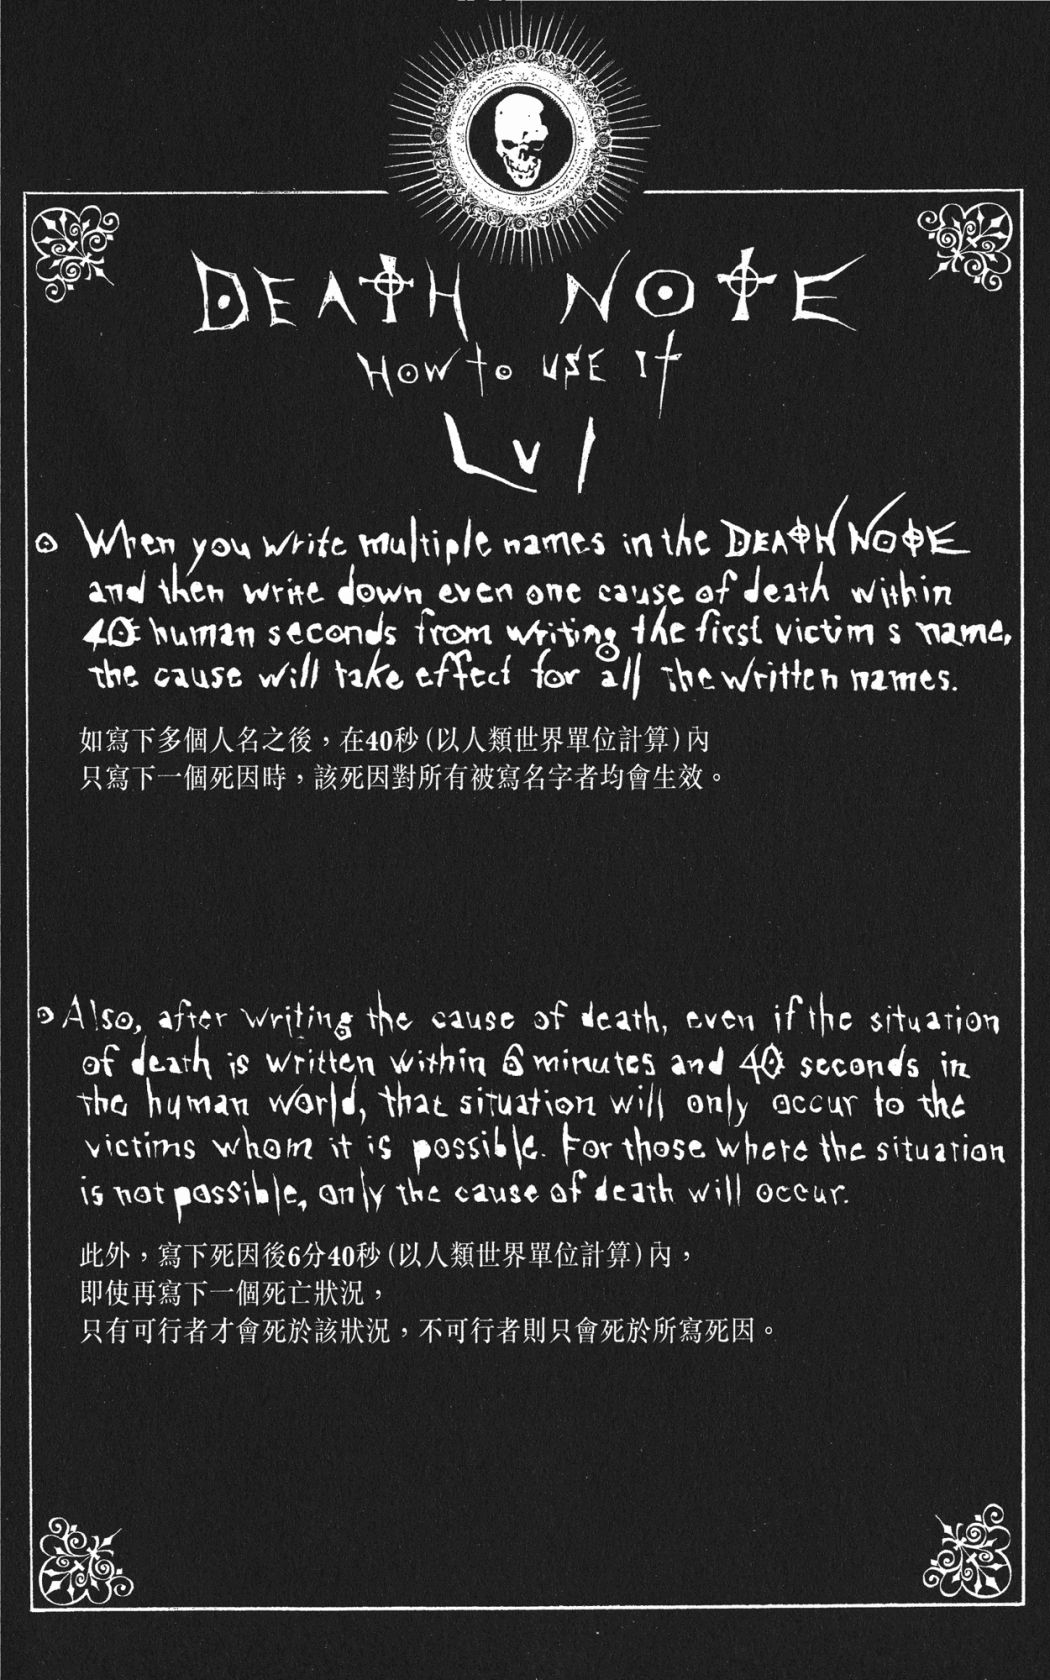 DEATH NOTE
HOW TO USE IT
LVI
When you write multiple names in the DEATH NOTE
and then write down even one cause of death within
40 human seconds from writing the first victim s name,
the cause will take effect for all the written names.
如寫下多個人名之後，在40秒(以人類世界單位計算)內
只寫下一個死因時，該死因對所有被寫名字者均會生效。
Also, after writing the cause of death, even if the situation
of death is written within 6 minutes and 40 seconds in
the human world, that situation will only occur to the
victims whom it is possible. For those where the situation
is not possible, only the cause of death will occur.
此外，寫下死因後6分40秒(以人類世界單位計算)內，
即使再寫下一個死亡狀況，
只有可行者才會死於該狀況，不可行者則只會死於所寫死因。